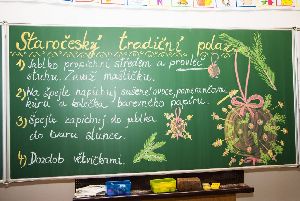 Staročeský tradiční
1) Jablko propíchni středem a provleč
stuhu. Zavaž mašličku.
2) Na špejle napichuj sušené ovoce, pomerančovou
kůru a kolečka barevného papíru.
3) Špejle zapichuj do jablka
do tvaru slunce.
4) Dozdob větvičkami.